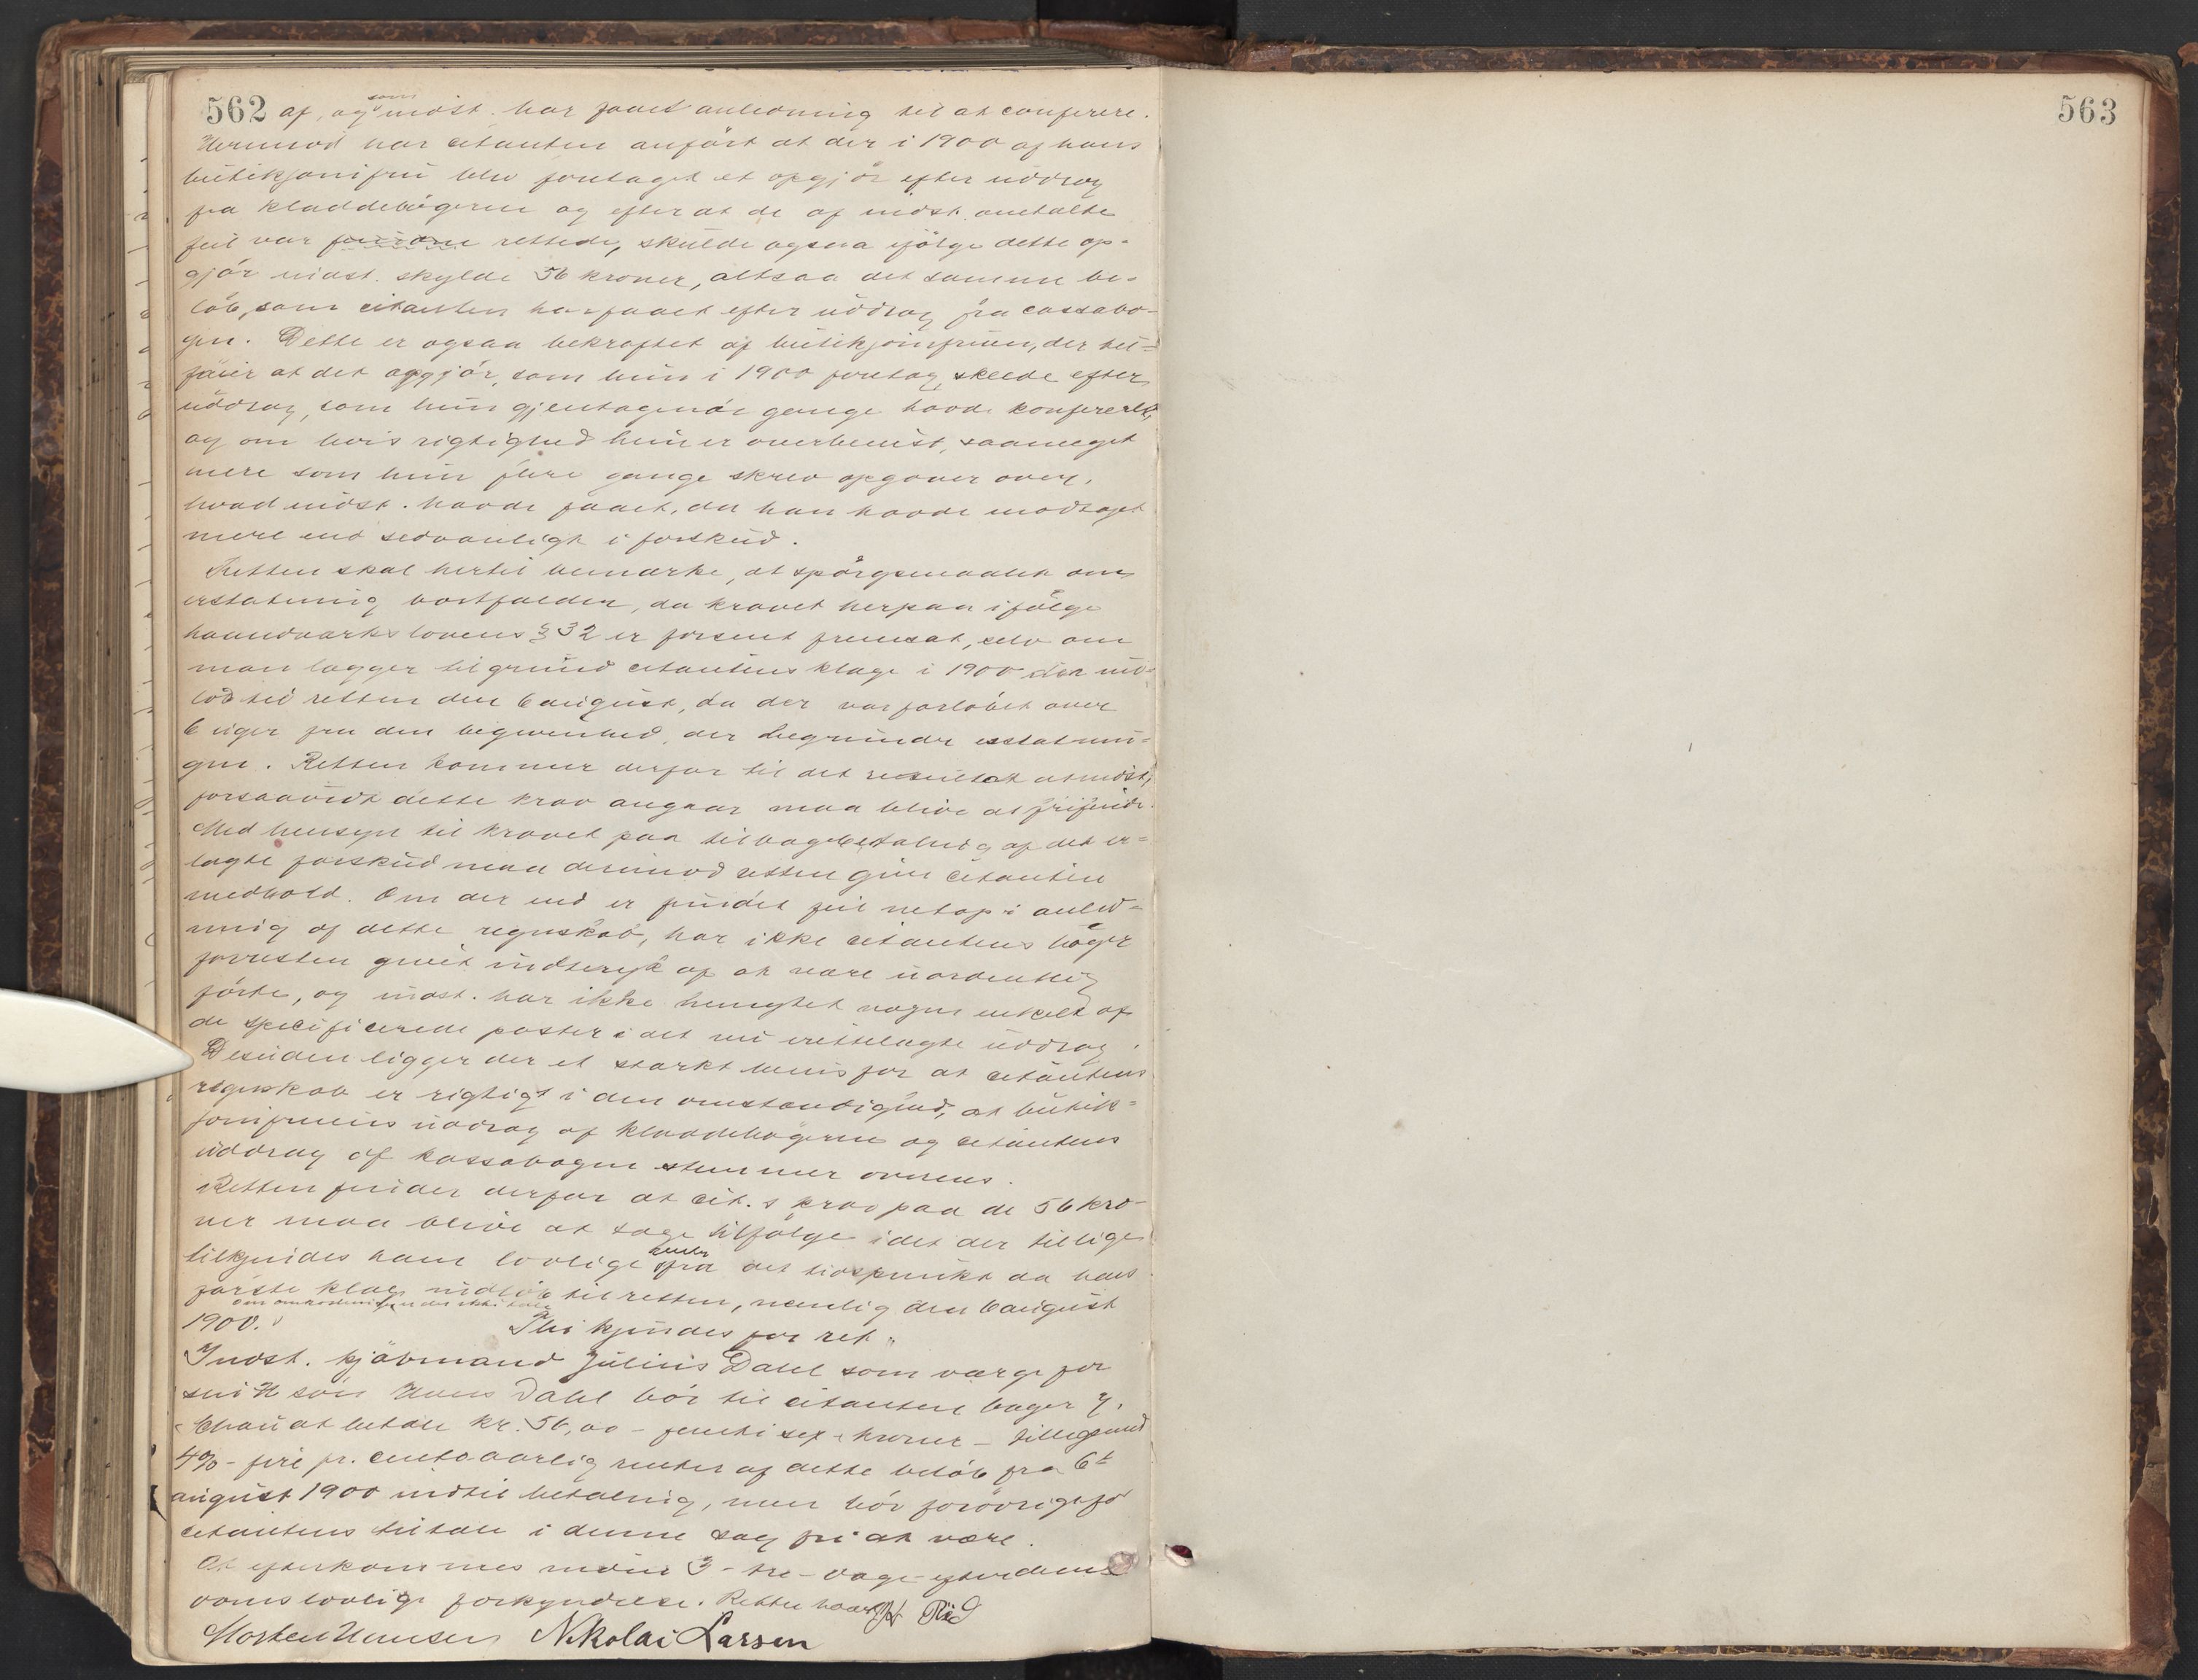 562 af, og som indst. har faaet anledning til at conferere.
Herimod har citanten anført at der i 1900 af hans
butikjomfru blev foretaget et opgjør efter uddrag
fra kladdebøgerne og efter at de af indst. omtalte
feil var rettede, skulde ogsaa ifølge dette op-
gjør indst. skylde 56 kroner, altsaa det samme be-
løb, som citanten har faaet efter uddrag fra cassabo-
gen. Dette er ogsaa bekræftet af butikjomfruen, der til=
føier at det opgjør, som hun i 1900 foretog, skede efter
uddrag, som hun gjentagende gange havde konfereret,
og om hvis rigtighed hun er overbevist, saameget
mere som hun flere gange skrev opgaver over,
hvad indst. havde faaet, da han havde modtaget
mere end sedvanligt i forskud.
Retten skal hertil bemærke, at spørgsmaalet om
erstatning bortfalder, da kravet herpaa ifølge
haandværkslovens § 32 er forsent fremsat, selv om
man lægger til grund citantens klage i 1900 der ind-
løb til retten den 6 august, da der var forløbet over
6 uger fra den begivenhed, der begrunder erstatnin=
gen. Retten kommer derfor til det resultat at indst.,
forsaavidt dette krav angaar maa blive at frifinde.
Med hensyn til kravet paa tilbagebetaling af det er=
lagte forskud maa derimod retten give citanten
medhold. Om der end er fundet feil netop i anled=
ning af dette regnskab, har ikke citantens bøger
forresten givet indtryk af at være uordentlig
førte, og indst. har ikke benegtet nogen enkelt af
de specificerede poster i det nu irettelagte uddrag.
Desuden ligger der et stærkt bevis for at citantens
regnskab er rigtigt i den omstændighed, at butik=
jomfruens uddrag af kladdebøgerne og citantens
uddrag af kassabogen stemmer overens.
Retten finder derfor at cit.s krav paa de 56 kro-
ner maa blive at tage tilfølge idet der tillige
tilkjendes ham lovlige renter fra det tidspunkt da hans
første klage indløb til retten, nemlig den 6 august
1900.
Thi kjendes for ret:
Indst. kjøbmand Julius Dahl som værge for
sin søn Hans Dahl bør til citanten bager
at betale kr. 56,00 - femti sex kroner - tilligemed
4% - fire pr. cento aarlig renter af dette beløb fra 6te
august 1900 indtil betaling, men bør forøvrigt for
citantens tiltale i denne sag fri at være.
At efterkommes inden 3 - tre - dage efter denne
doms lovlige forkyndelse. Retten hævet
Morten Hansen Nikolai Larsen
563